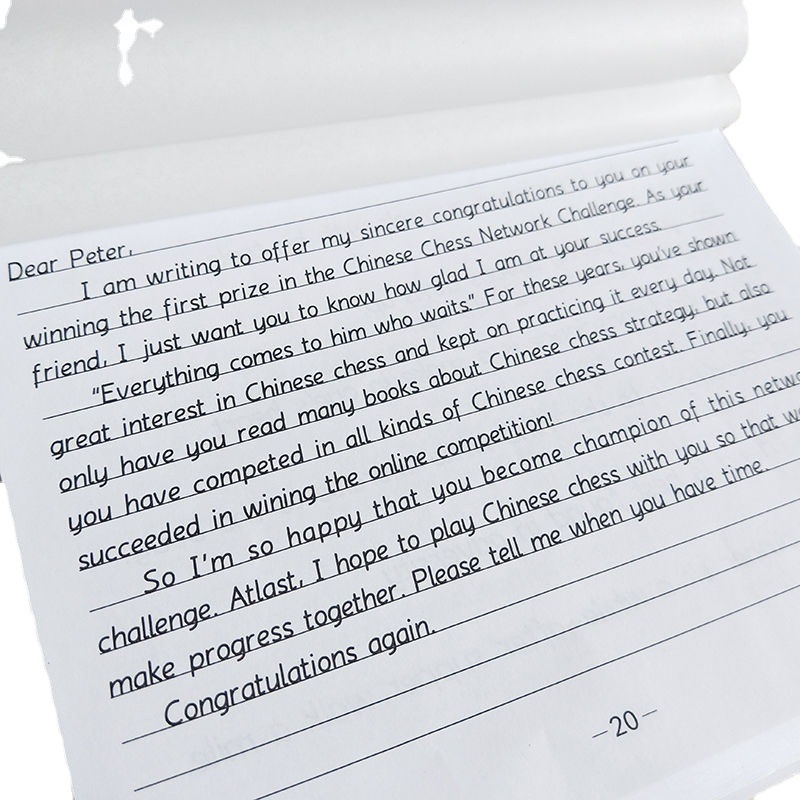 Dear Peter,
I am writing to offer my sincere congratulations to you on your
winning the first prize in the Chinese Chess Network Challenge. As your
friend, I just want you to know how glad I am at your success.
"Everything comes to him who waits." For these years, you've shown
great interest in Chinese chess and kept on practicing it every day. Not
only have you read many books about Chinese chess strategy, but also
you have competed in all kinds of Chinese chess contest. Finally, you
succeeded in wining the online competition!
So I'm so happy that you become champion of this
challenge. Atlast, I hope to play Chinese chess with you so that
make progress together. Please tell me when you have time.
Congratulations again.
-20-